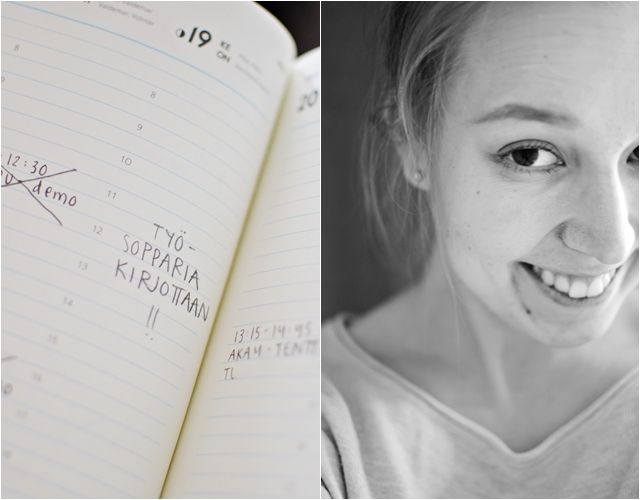 Valdemar, Volmar
19 KE
ON
20
8
8
9
9
10
12:30
demo
11
12
TYÖ-
SOPPARIA
KIRJOTTAAN
!!
13
14
15
16
13:15-14:45
AKAY-TENTT
TL